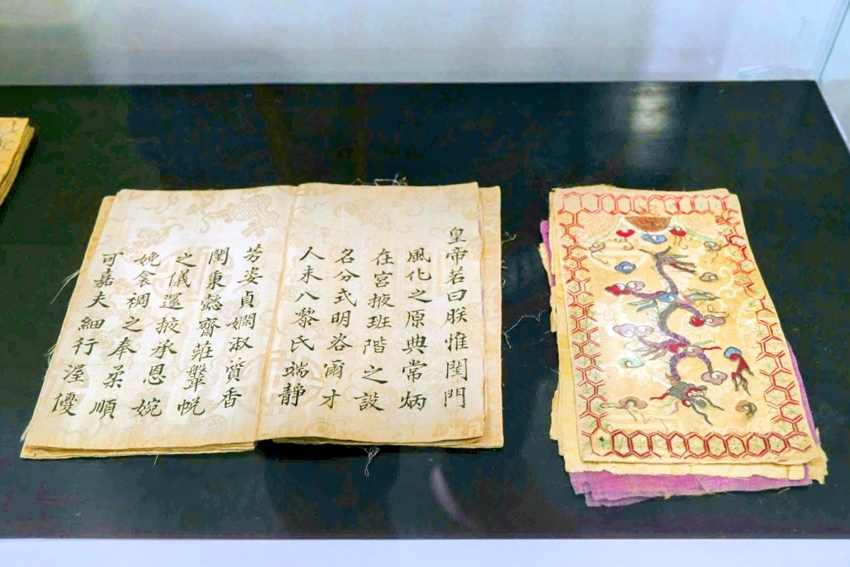 皇帝若曰朕惟閨門
風化之原典常炳
在宮掖班階之設
名分式明咨爾才
人未入黎氏端靜
芳姿貞嫻淑質香
閨秉懿齋莊鞶帨
之儀選掖承恩婉
娩衾裯之奉柔順
可嘉夫細行渥優